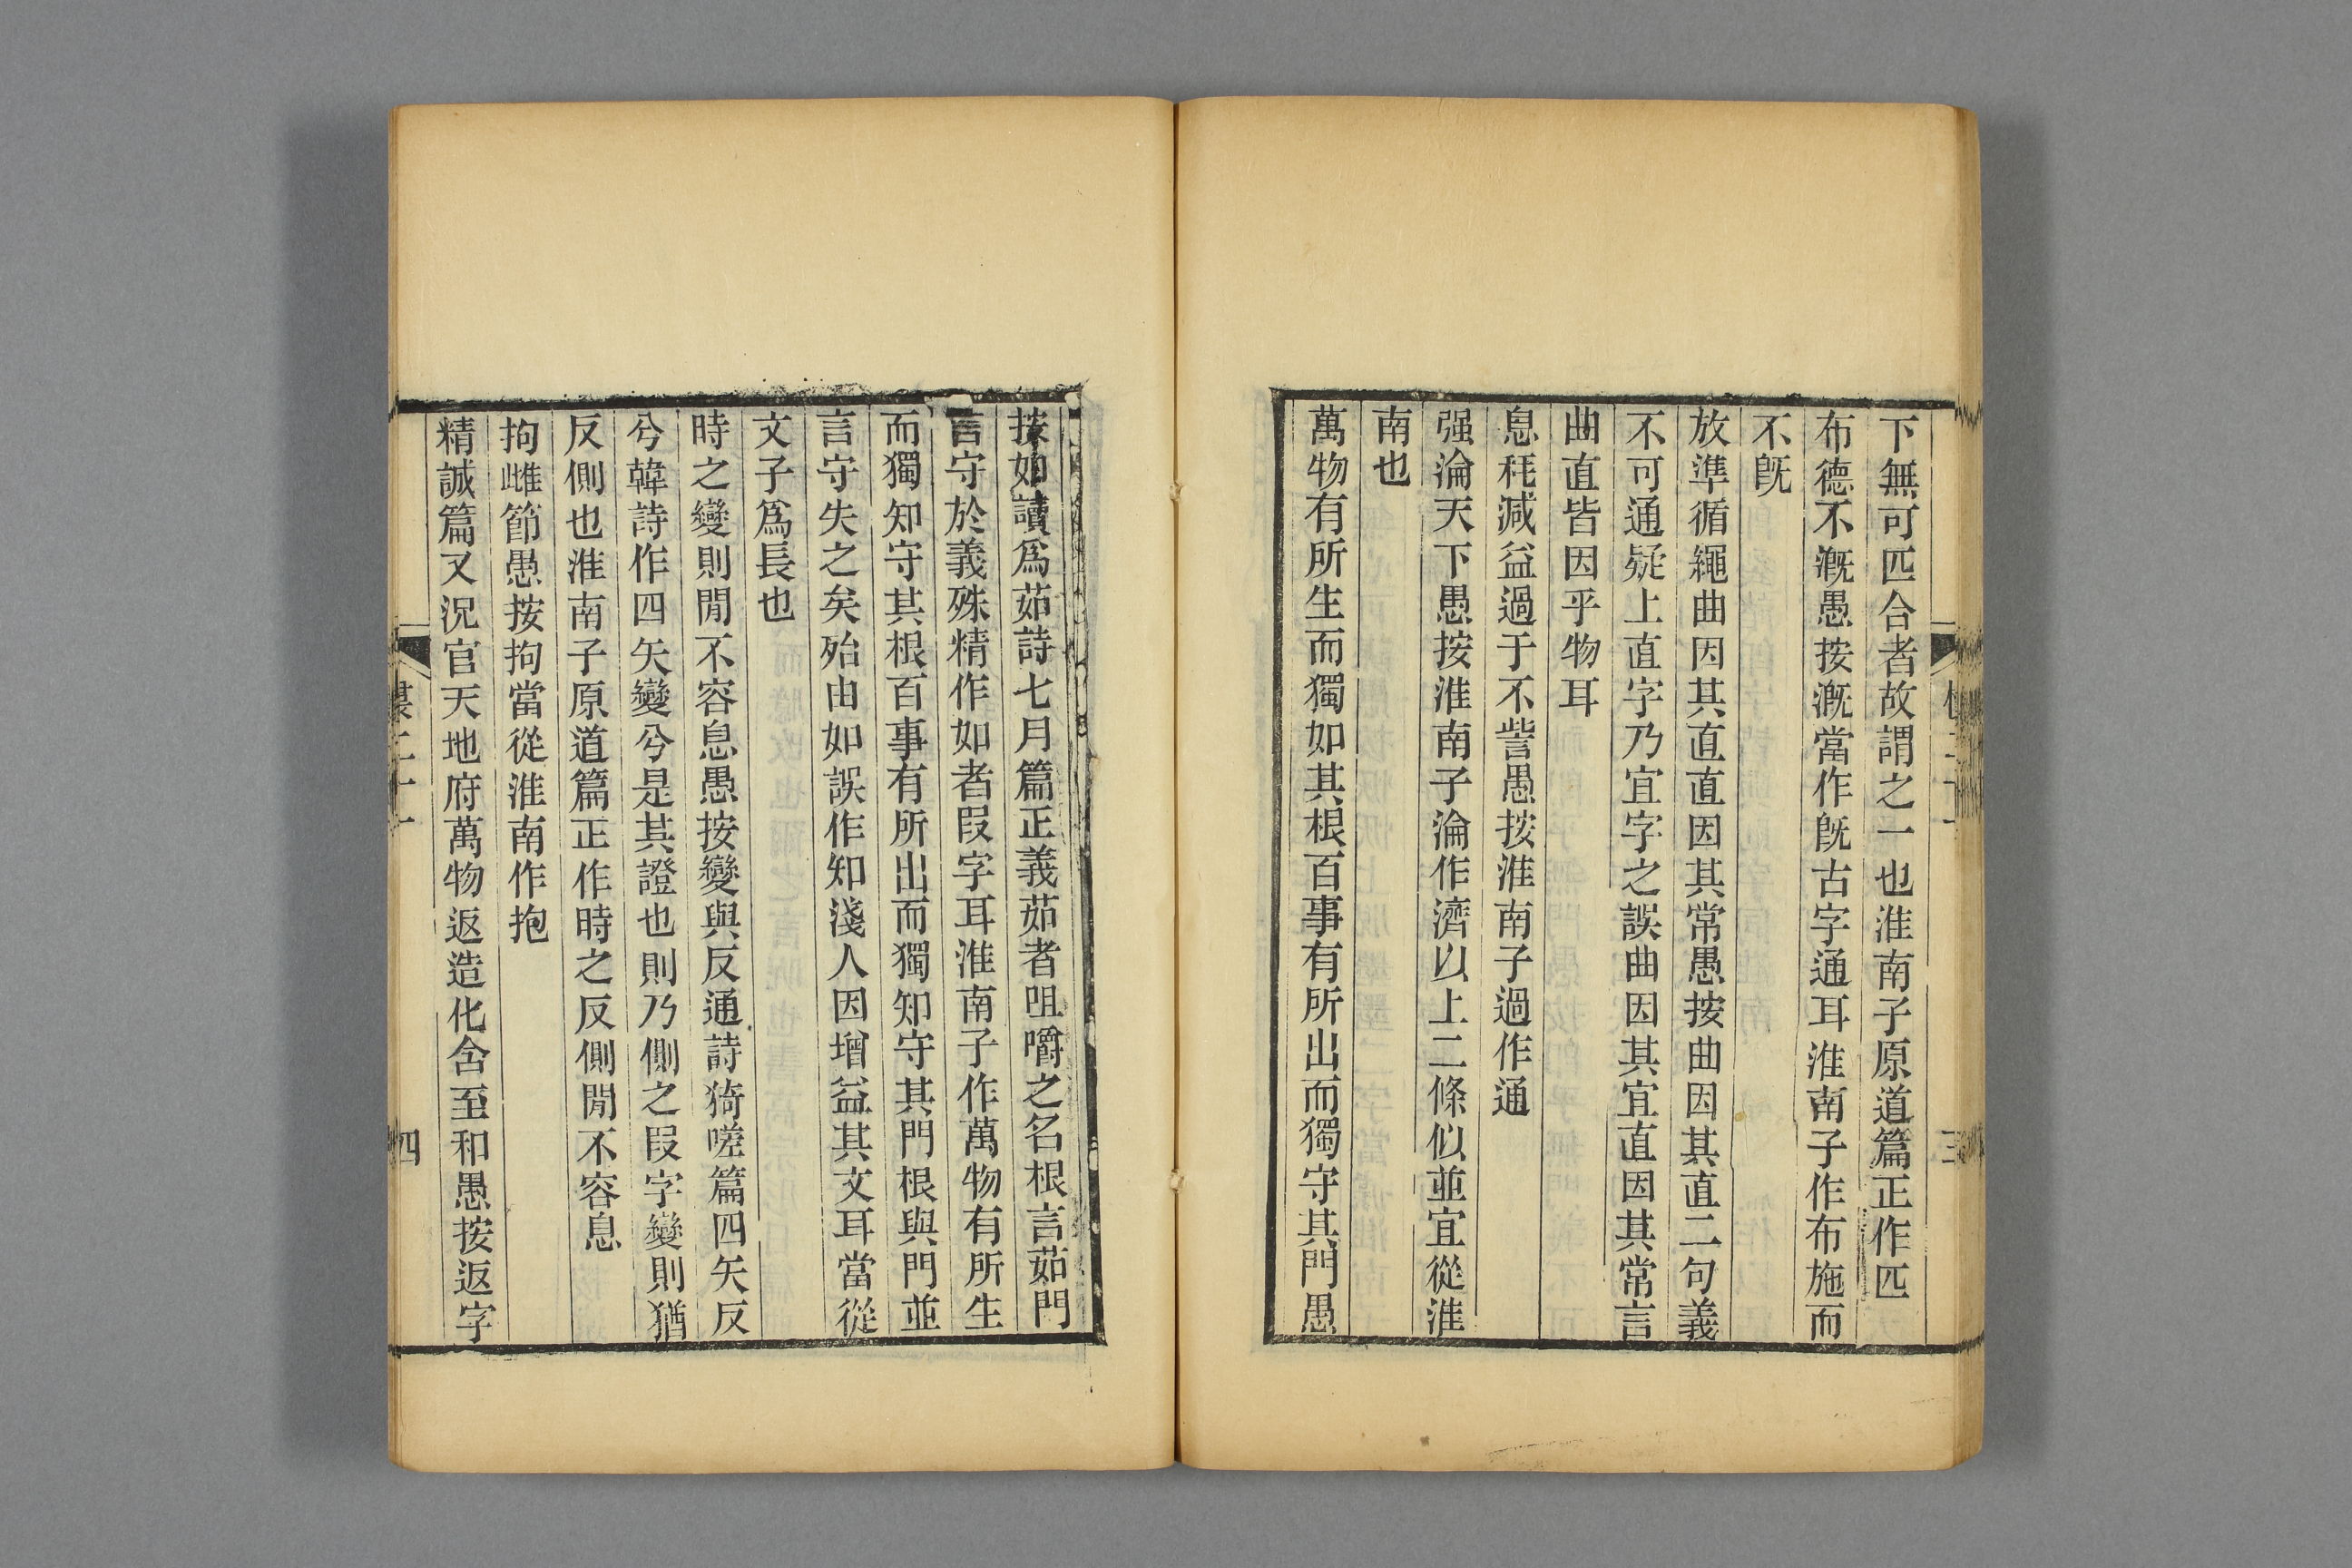 下無可匹合者故謂之一也淮南子原道篇正作匹
布德不溉愚按溉當作旣古字通耳淮南子作布施而
不旣
放準循繩曲因其直直因其常愚按曲因其直二句義
不可通疑上直字乃宜字之誤曲因其宜直因其常言
曲直皆因乎物耳
息秏減益過于不訾愚按淮南子過作通
强淪天下愚按淮南子淪作濟以上二條似並宜從淮
南也
萬物有所生而獨如其根百事有所出而獨守其門愚
按如讀爲茹詩七月篇正義茹者咀嚼之名根言茹門
言守於義殊精作如者叚字耳淮南子作萬物有所生
而獨知守其根百事有所出而獨知守其門根與門並
言守失之矣殆由如誤作知淺人因增益其文耳當從
文子爲長也
時之變則閒不容息愚按變與反通詩猗嗟篇四矢反
兮韓詩作四矢變兮是其證也則乃側之叚字變則猶
反側也淮南子原道篇正作時之反側閒不容息
拘雌節愚按拘當從淮南作抱
精誠篇又況官天地府萬物返造化含至和愚按返字
四